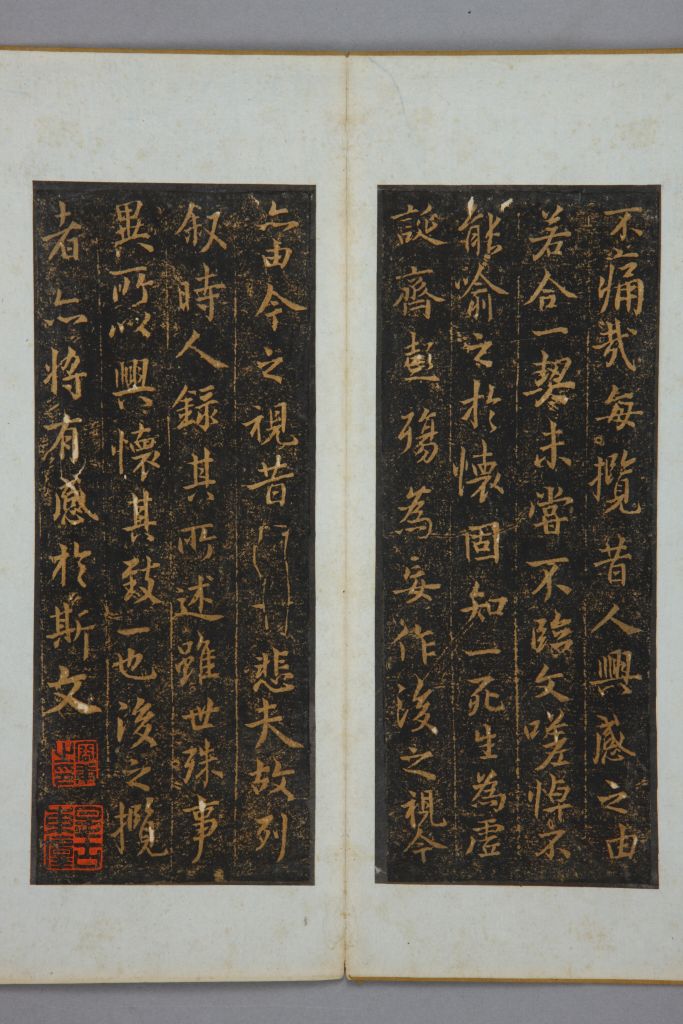 不痛哉每攬昔人興感之由
若合一契未嘗不臨文嗟悼不
能喻之於懷固知一死生為虛
誕齊彭殤為妄作後之視今
亦由今之視昔悲夫故列
叙時人錄其所述雖世殊事
異所以興懷其致一也後之攬
者亦将有感於斯文